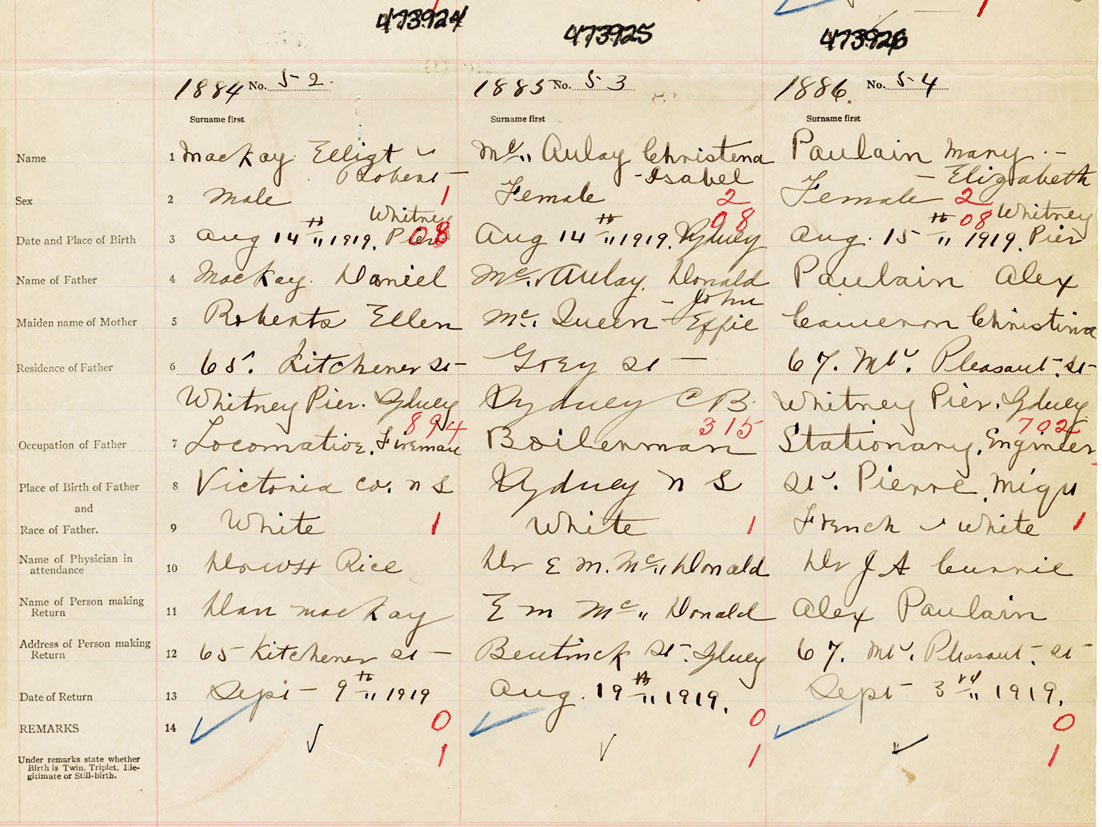 473924 473925 473926
1884 No. 52. 1885 No. 53 1886. No. 54
Surname first Surname first Surname first
Name 1 MacKay Elligt Mc,, Aulay Christena Paulain Mary
Robert - Isabel - Elizabeth
Sex 2 Male 1 Female 2 Female 2
Whitney 08 08 Whitney
Date and Place of Birth 3 Aug 14th,, 1919, Pier 08 Aug 14th,, 1919, Sydney Aug. 15th,, 1919, Pier
Name of Father 4 MacKay. Daniel Mc,, Aulay. Donald Paulain Alex
- John
Maiden name of Mother 5 Roberts Ellen Mc,, Queen - Effie Cameron Christina
Residence of Father 6 65. Kitchener St - St - 67. Mt. Pleasant. St -
Whitney Pier. Sydney Sydney C B. Whitney Pier. Sydney
894 315 702
Occupation of Father 7 Locomative, Fireman Boilerman Stationary, Engineer
Place of Birth of Father 8 Victoria Co. N S Sydney N S St. Pierre, Miqu
and
Race of Father. 9 White 1 White 1 French - White 1
Name of Physician in
attendance 10 Rice Dr E M. Mc,, Donald Dr J A Currie
Name of Person making
Return 11 Dan MacKay E M Mc,, Donald Alex Paulain
Address of Person making
Return 12 65 Kitchener St - Bentinck St. Sydney 67. Mt. Pleasant. St -
Date of Return 13 Sept - 9th,, 1919 Aug. 19th,, 1919, Sept - 3rd,, 1919,
REMARKS 14 0 0 0
Under remarks state whether
Birth is Twin, Triplet, Ille-
gitimate or Still-birth. 1 1 1